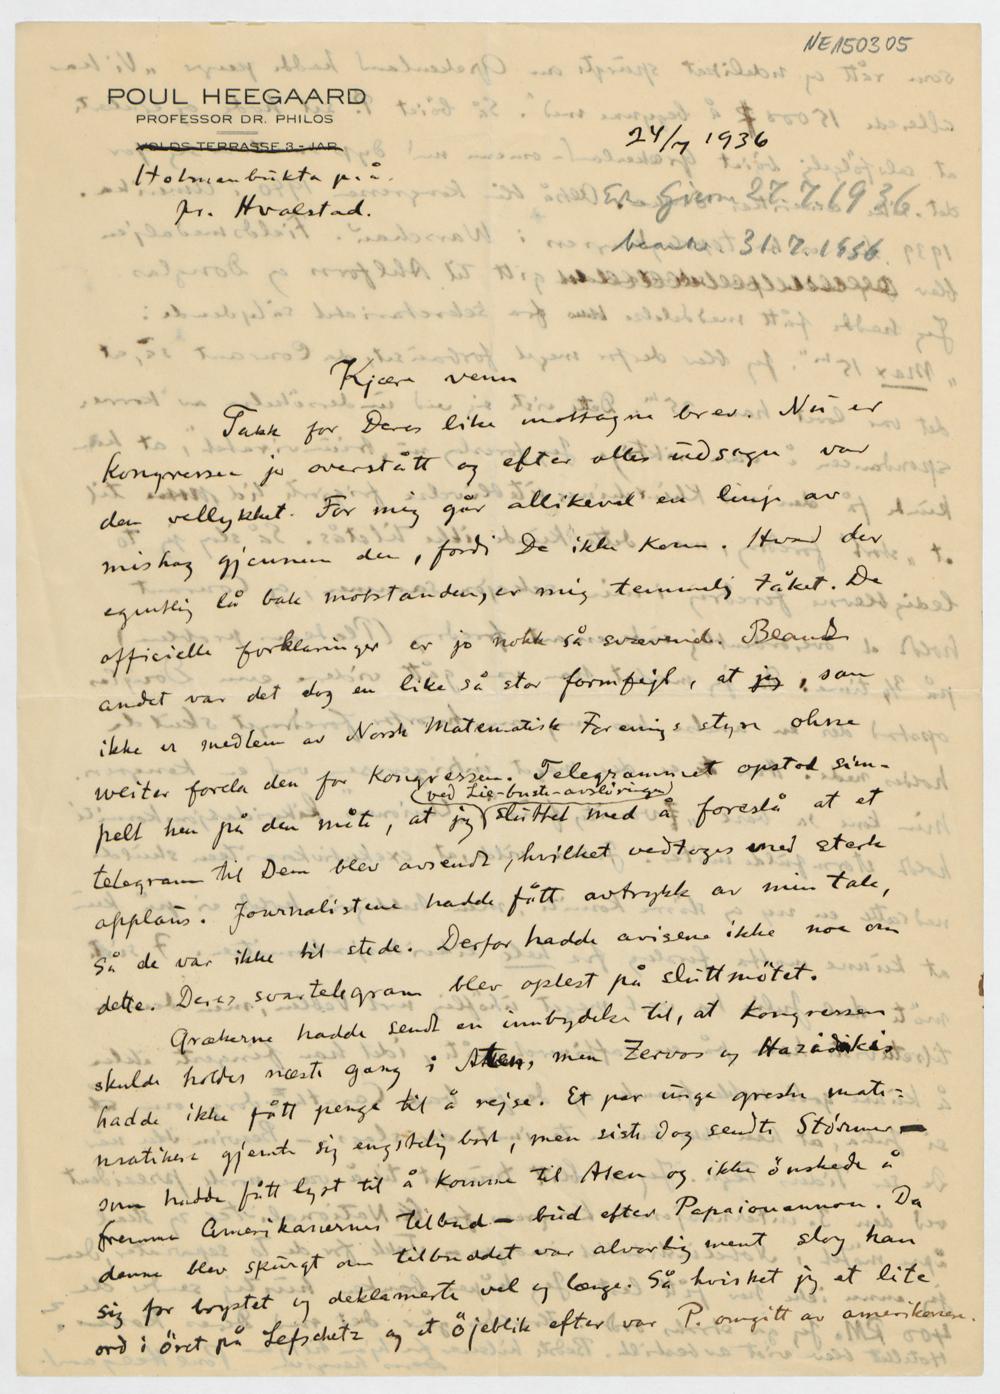 NE150305
POUL HEEGAARD
PROFESSOR DR. PHILOS
VOLDS TERRASSE 3 - JAR
Holmenbukta p.å.
pr. Hvalstad.
24/7 1936
27.7.1936.
31.7.1936.
Kjære venn
Takk for Deres like mottagne brev. Nu er
kongressen jo overstått og efter alles udsagn var
den vellykket. For mig går allikevel en linje av
mishag gjennem den, fordi De ikke kom. Hvad der
egentlig lå bak motstanden, er mig temmelig tåket. De
officielle forklaringer er jo nokk så svævend. Blandt
andet var det dog en like så stor formfejl, at jeg, som
ikke er medlem av Norsk Matematisk Forenings styre ohne
weiter forela den for kongressen. Telegrammet opstod sim-
pelt hen på den måte, at jeg (ved Lie-buste-avsløringen) sluttet med å foreslå at et
telegram til Dem blev avsendt, hvilket vedtoges med sterk
applaus. Journalistene hadde fått avtrykk av min tale,
så de var ikke til stede. Derfor hadde avisene ikke noe om
dette. Deres svartelegram blev oplest på sluttmötet.
Grækerne hadde sendt en innbydelse til, at kongressen
skulde holdes næste gang i Aten, men Zervos og Hazidakis
hadde ikke fått penge til å rejse. Et par unge greske mate-
matikere gjemte sig engstelig bort, men siste dag sendte Störmer —
som hadde fått lyst til å komme til Aten og ikke önskede å
fremme Amerikanernes tilbud — bud efter Papaioannou. Da
denne blev spurgt om tilbuddet var alvorlig ment slog han
sig for brystet og deklamerte vel og længe. Så hvisket jeg et lite
ord i öret på Lefschetz og et öjeblik efter var P. omgitt av amerikanere.